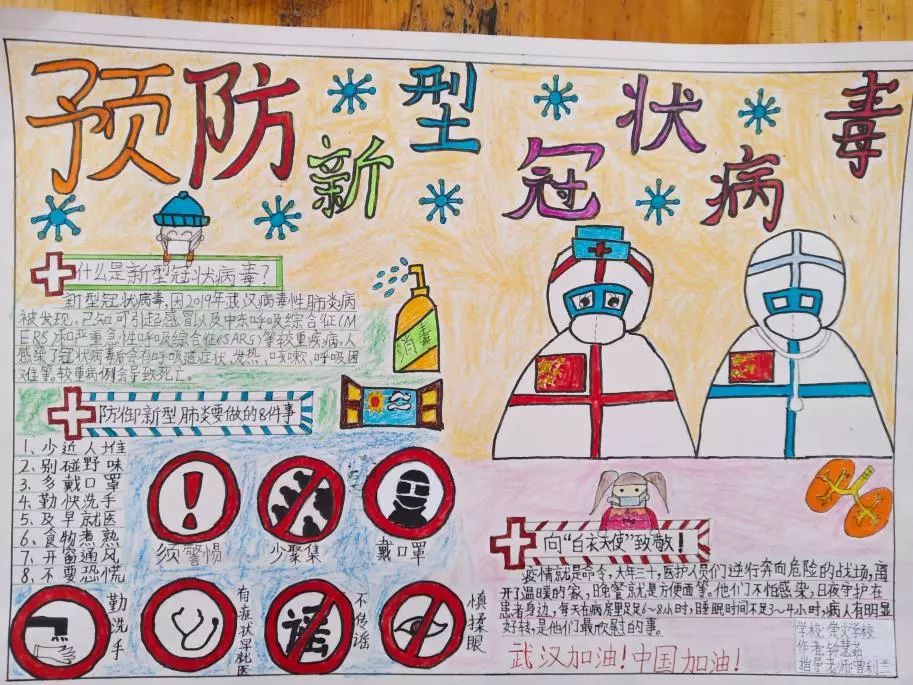 预防新型冠状病毒
什么是新型冠状病毒?
新型冠状病毒,因2019年武汉病毒性肺炎病
被发现,已知可引起感冒以及中东呼吸综合征(M
ERS)和严重急性呼吸综合征(SARS)等较重疾病,人
感染了冠状病毒后会有呼吸道症状、发热、咳嗽、呼吸困
难等。较重病例会导致死亡。
消毒
防御新型肺炎要做的8件事
1、少近人堆
2、别碰野味
3、多戴口罩
4、勤快洗手
5、及早就医
6、食物煮熟
7、开窗通风
8、不要恐慌
须警惕
少聚集
戴口罩
勤洗手
有症状早就医
谣
不传谣
慎揉眼
向“白衣天使”致敬!
疫情就是命令,大年三十,医护人员们逆行奔向危险的战场,离
开温暖的家,日晚餐就是方便面等。他们不怕感染,日夜守护在
患者身边,每天在病房里足足6~8小时,睡眠时间不足3~4小时,病人有明显
好转,是他们最欣慰的事。
武汉加油!中国加油!
学校:崇文学校
作者:钟慧茹
指导老师:曹利兰